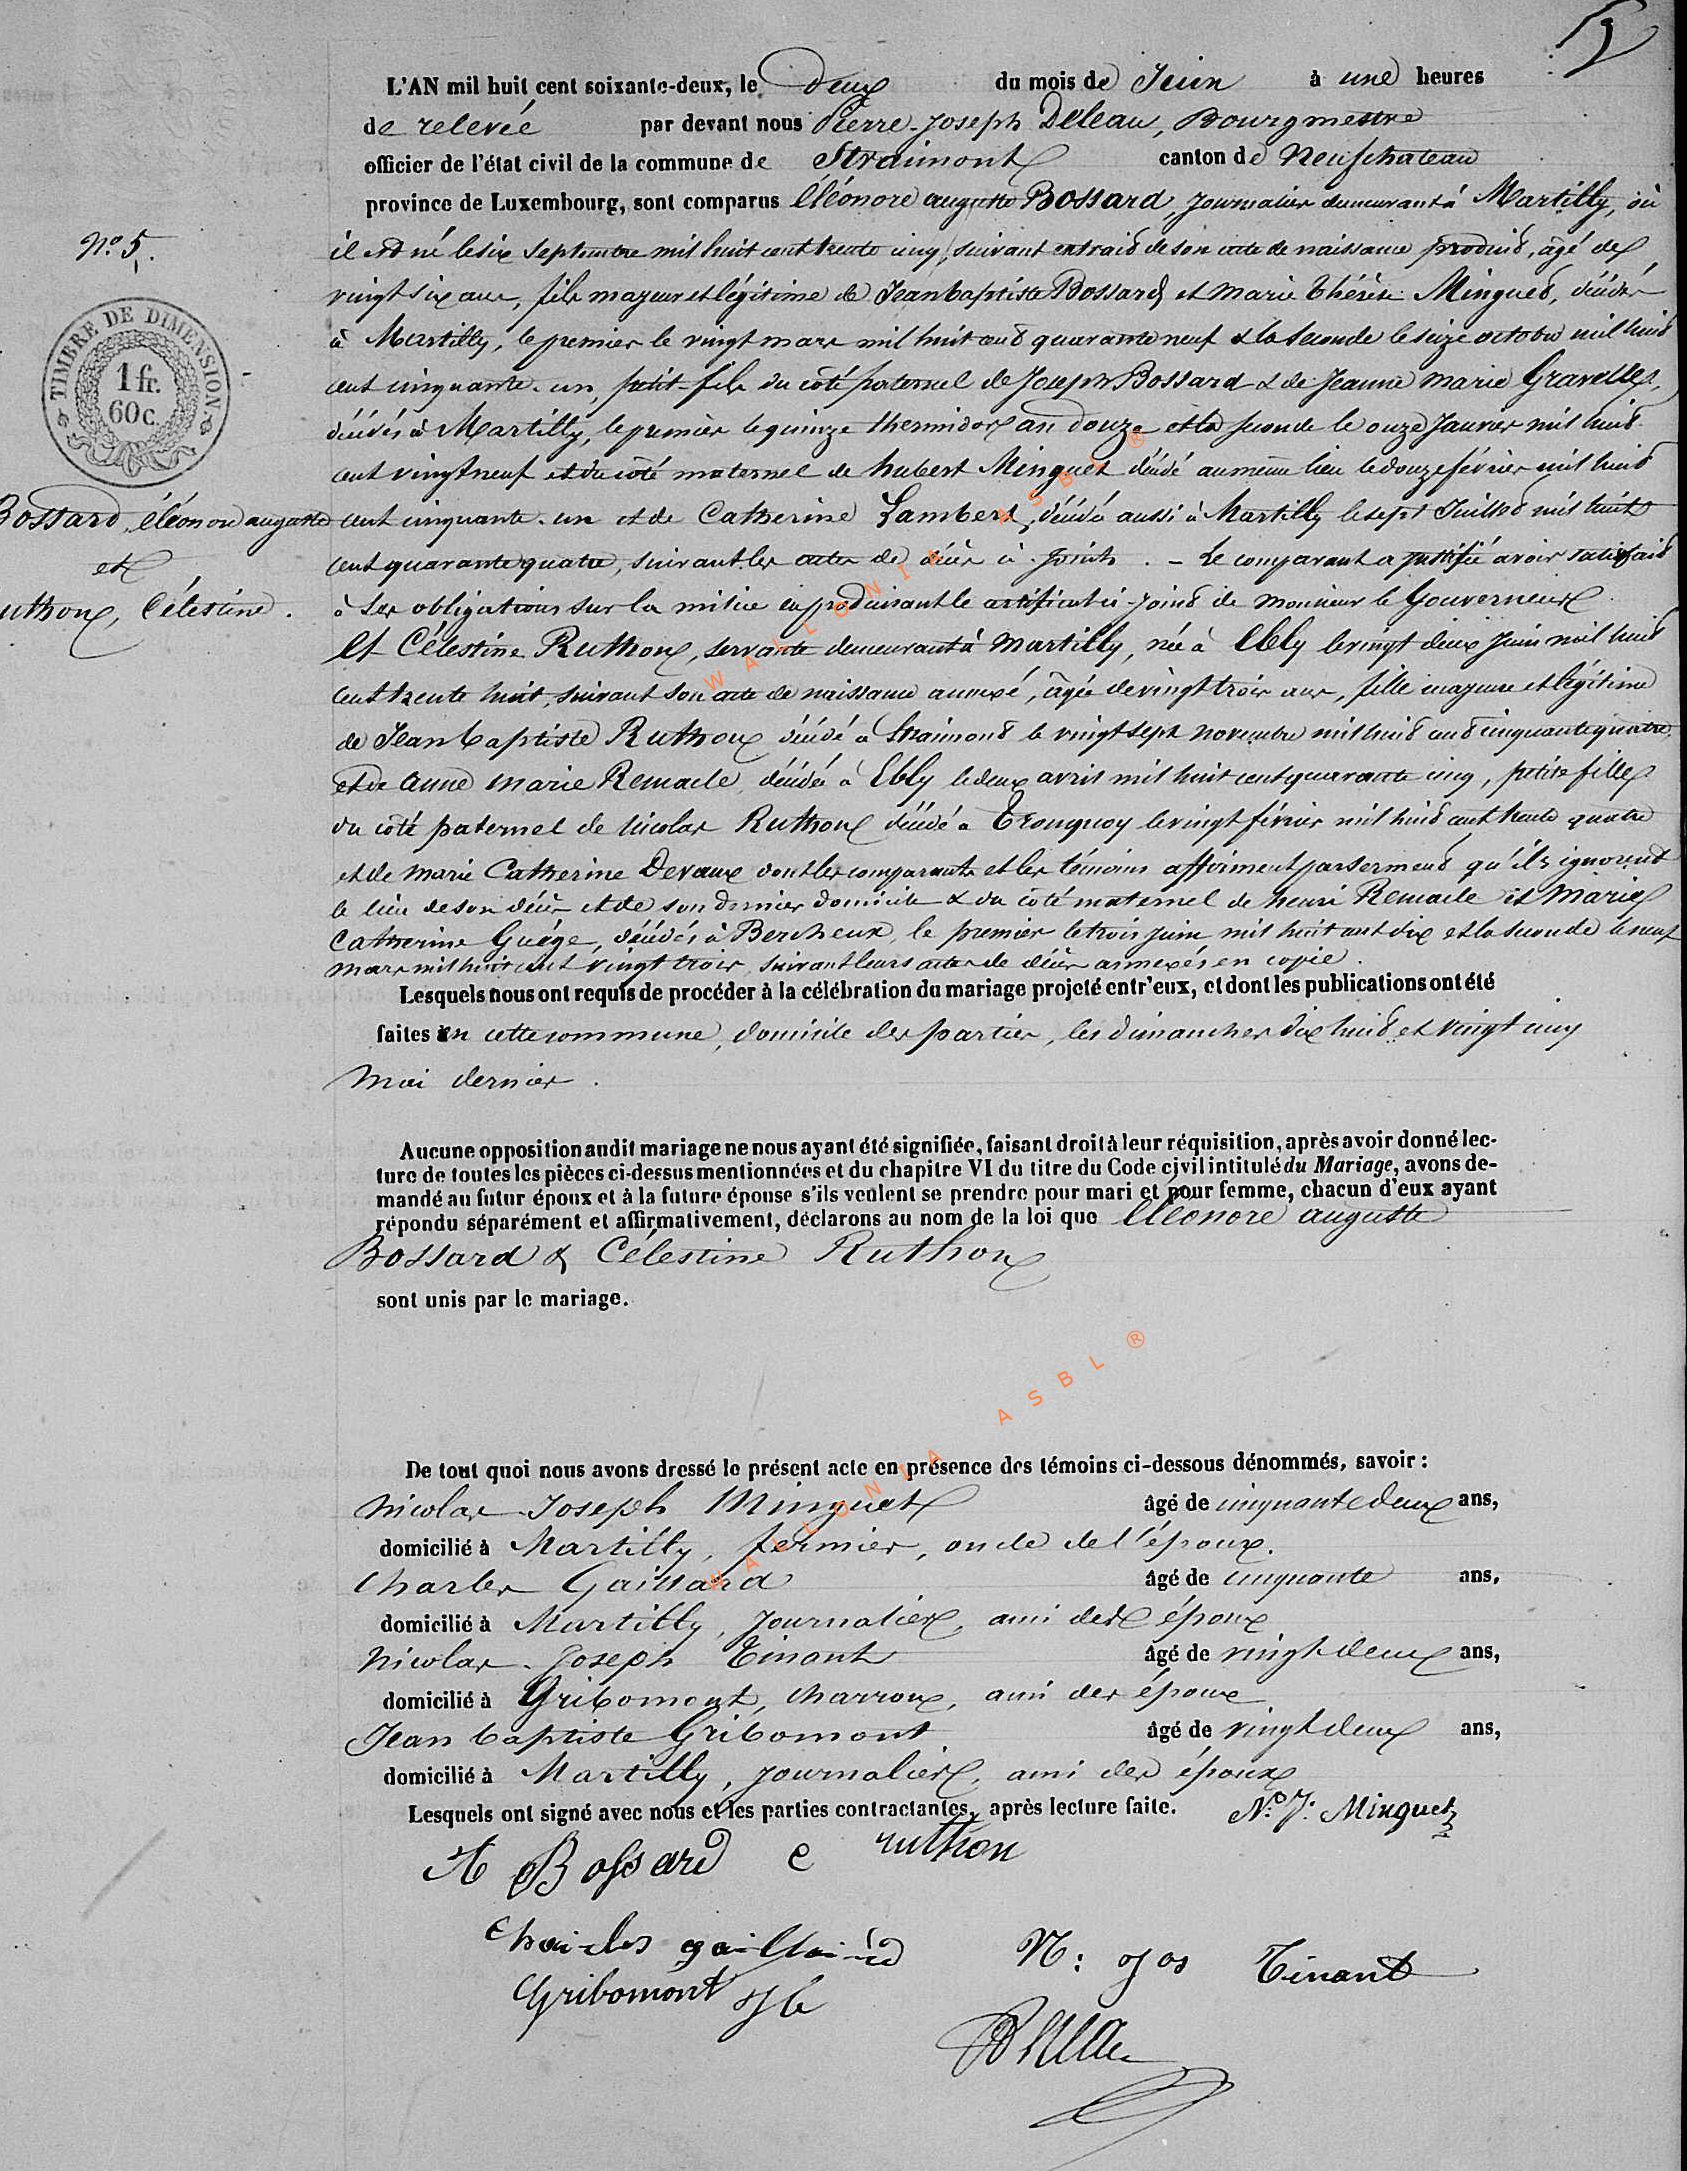 L'AN mil huit cent soixante-deux, le deux du mois de Juin à une heures
de relevée par devant nous Pierre-Joseph Deleau, Bourgmestre
officier de l'état civil de la commune de Straimont canton de Neufchateau
province de Luxembourg, sont comparus éléonore auguste Bossard, journalier demeurant à Martilly, où
N° 5.
il est né le six Septembre mil huit cent trente cinq, suivant extrait de son acte de naissance produit, âgé de
vingt six ans, fils majeur et légitime de Jean baptiste Bossard et marie thérèse Minguet, décédés
à Martilly, le premier le vingt mars mil huit cent quarante neuf & la seconde le seize octobre mil huit
TIMBRE DE DIMENSION
1 fr.
60 c.
cent cinquante-un, petit-fils du côté paternel de Joseph Bossard & de Jeanne marie Gravelle,
décédés à Martilly, le premier le quinze thermidor an douze et la seconde le onze Janvier mil huit
cent vingt neuf et du côté maternel de hubert Minguet décédé au même lieu le douze février mil huit
Bossard, éléonore auguste
cent cinquante-un et de Catherine Lambert, décédée aussi à Martilly le sept Juillet mil huit
et
cent quarante quatre, suivant les actes de décès ci-joints. - Le comparant a justifié avoir satisfait
uthoux, Célestine.
à ses obligations sur la milice en produisant le certificat ci-joint de monsieur le Gouverneur.
Et Célestine Ruthoux, servante demeurant à Martilly, née à Ebly le vingt deux Juin mil huit
cent trente huit, suivant son acte de naissance annexé, âgée de vingt trois ans, fille majeure et légitime
de Jean baptiste Ruthoux décédé à Straimont le vingt sept novembre mil huit cent cinquante quatre
et de anne marie Remacle, décédée à Ebly le deux avril mil huit cent quarante cinq, petite fille
du côté paternel de Nicolas Ruthoux décédé à Tronquoy le vingt février mil huit cent trente quatre
et de marie Catherine Devaux dont les comparants et les témoins affirment par serment qu'ils ignorent
le lieu de son décès et de son dernier domicile & du côté maternel de henri Remacle et Marie
Catherine Guége, décédés à Bercheux, le premier le trois juin mil huit cent dix et la seconde le neuf
mars mil huit cent vingt trois, suivant leurs actes de décès annexés en copie.
Lesquels nous ont requis de procéder à la célébration du mariage projeté entr'eux, et dont les publications ont été
faites en cette commune, domicile des parties, les dimanches dix huit et vingt cinq
Mai dernier.
Aucune opposition audit mariage ne nous ayant été signifiée, faisant droit à leur réquisition, après avoir donné lec-
ture de toutes les pièces ci-dessus mentionnées et du chapitre VI du titre du Code civil intitulé du Mariage, avons de-
mandé au futur époux et à la future épouse s'ils veulent se prendre pour mari et pour femme, chacun d'eux ayant
répondu séparément et affirmativement, déclarons au nom de la loi que éléonore auguste
Bossard & Célestine Ruthoux
sont unis par le mariage.
De tout quoi nous avons dressé le présent acte en présence des témoins ci-dessous dénommés, savoir :
Nicolas-Joseph Minguet âgé de cinquante deux ans,
domicilié à Martilly, fermier, oncle de l'époux.
Charles Gaillard âgé de cinquante ans,
domicilié à Martilly, Journalier, ami des époux
Nicolas-Joseph Tinant âgé de vingt deux ans,
domicilié à Gribomont, charron, ami des époux
Jean baptiste Gribomont âgé de vingt deux ans,
domicilié à Martilly, journalier, ami des époux
Lesquels ont signé avec nous et les parties contractantes, après lecture faite. N: J: Minguet
A Bossard c ruthon
Charles gaillard N: Jos Tinant
Gribomont J b
WALLONIA ASBL ®
WALLONIA ASBL ®